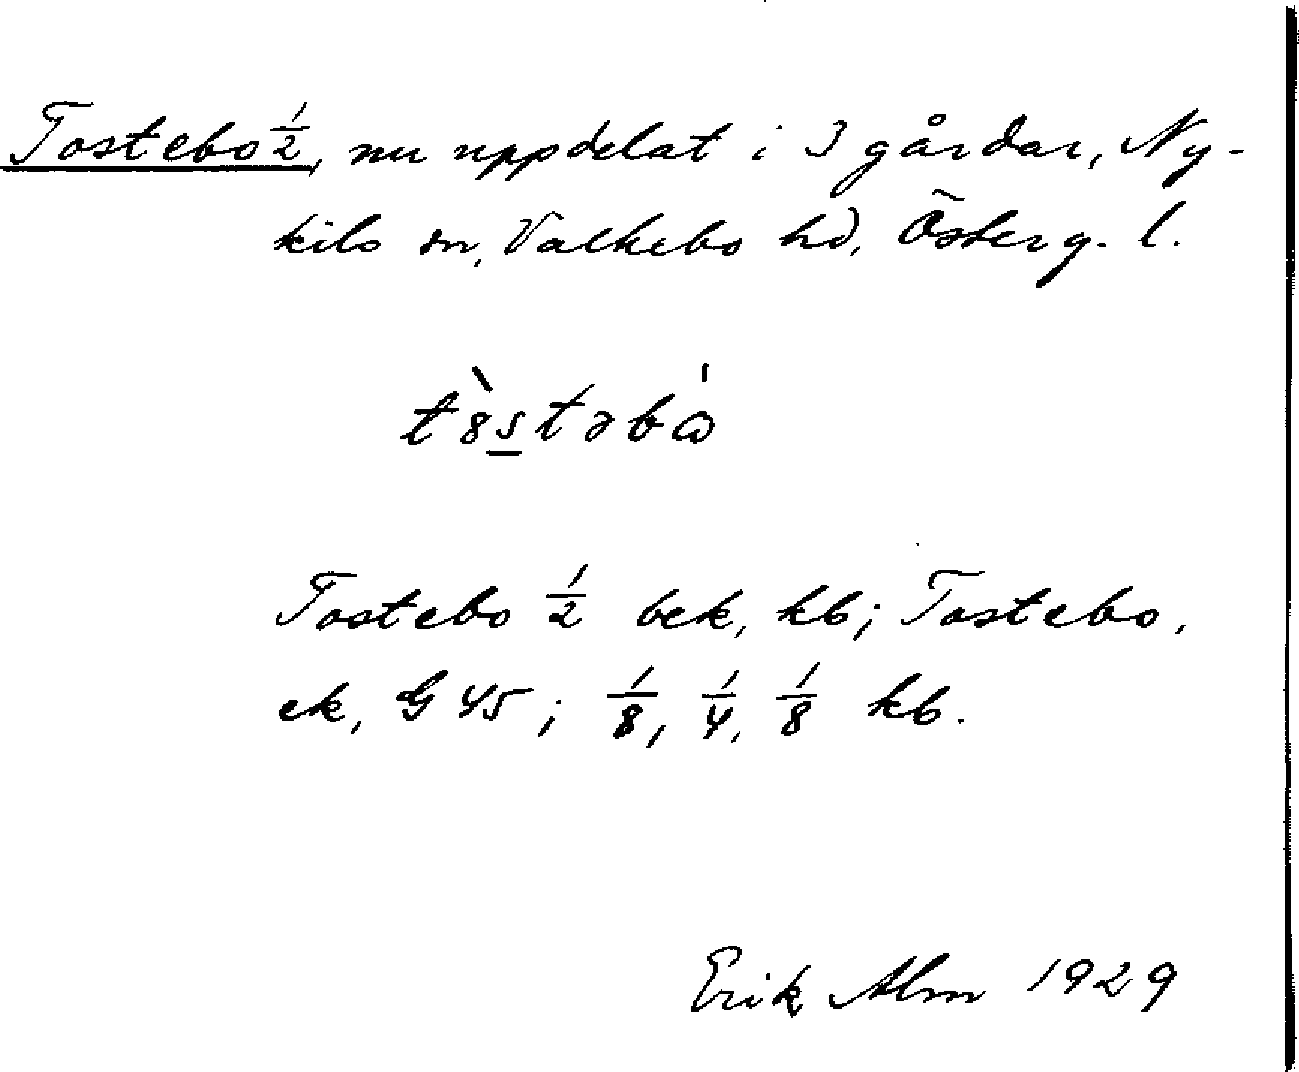 Tostebo ½, nu uppdelat i 3 gårdar, Ny-
kils sn, Valkebo hd, Österg. l.
t8̀stəbɷ̍
Tostebo ½ bek, kb; Tostebo,
ek, G 45; ⅛, ¼, ⅛ kb.
Erik Alm 1929